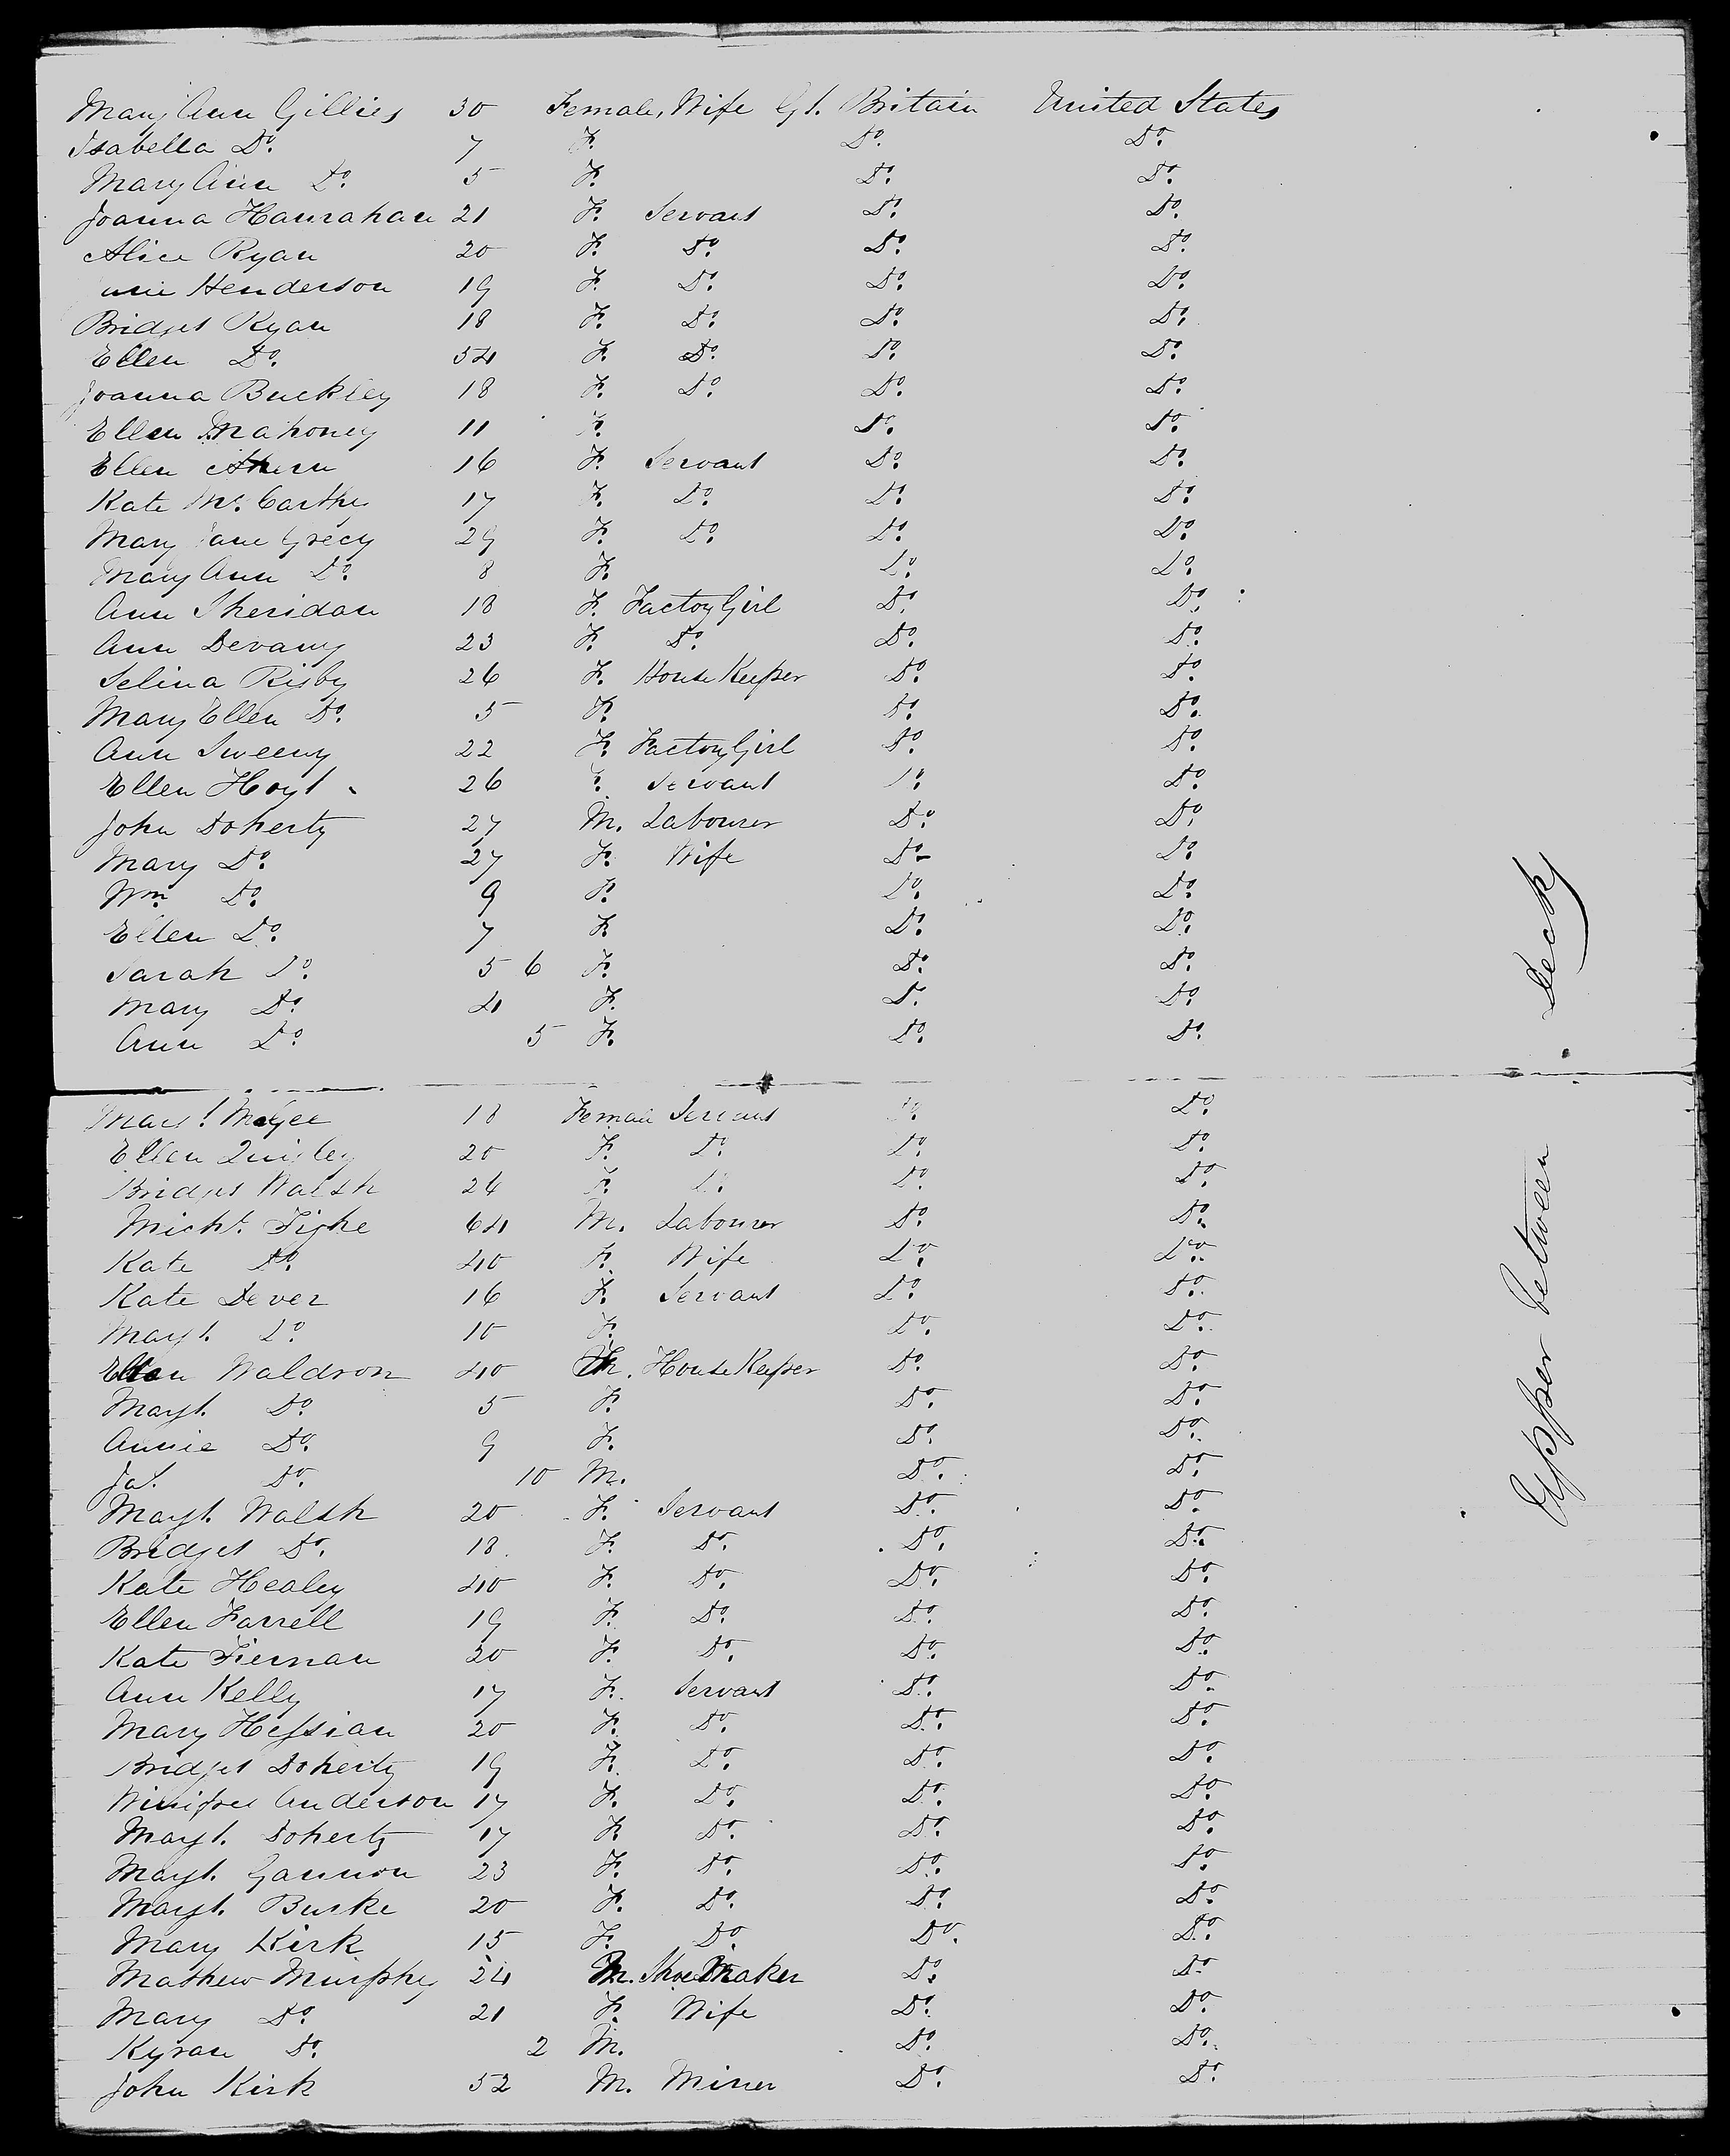 Mary Ann Gillies 30 Female, Wife Gt. Britain United States
Isabella Do. 7 F. Do. Do.
Mary Ann Do. 5 F. Do. Do.
Joanna Hanrahan 21 F. Servant Do. Do.
Alice Ryan 20 F. Do. Do. Do.
Henderson 19 F. Do. Do. Do.
Bridget Ryan 18 F. Do. Do. Do.
Ellen Do. 54 F. Do. Do. Do.
Joanna Buckley 18 F. Do. Do. Do.
Ellen Mahoney 11 F. Do. Do.
Ellen Ahern 16 F. Servant Do. Do.
Kate McCarthy 17 F. Do. Do. Do.
Mary Jane Grecy 29 F. Do. Do. Do.
Mary Ann Do. 8 F. Do. Do.
Ann Sheridan 18 F. Factory Girl Do. Do.
Ann Devany 23 F. Do. Do. Do.
Selina Rigby 26 F. House Keeper Do. Do.
Mary Ellen Do. 5 F. Do. Do.
Ann Sweeny 22 F. Factory Girl Do. Do.
Ellen Hoyt 26 F. Servant Do. Do.
John Doherty 27 M. Labourer Do. Do.
Mary Do. 27 F. Wife Do. Do.
Wm. Do. 9 F. Do. Do.
Ellen Do. 7 F. Do. Do.
Sarah Do. 5 6 F. Do. Do.
Mary Do. 4 F. Do. Do.
Ann Do. 5 F. Do. Do.
McGee 18 Female Servant Do. Do.
Ellen Quigley 20 F. Do. Do. Do.
Bridget Walsh 24 F. Do. Do. Do.
Michl. Tighe 64 M. Labourer Do. Do.
Kate Do. 40 F. Wife Do. Do.
Kate Dever 16 F. Servant Do. Do.
Margt. Do. 10 F. Do. Do.
Ellen Waldron 40 House Keeper Do. Do.
Margt. Do. 5 F. Do. Do.
Annie Do. 9 F. Do. Do.
Jas. Do. 10 M. Do. Do.
Margt. Walsh 20 F. Servant Do. Do.
Bridget Do. 18 F. Do. Do. Do.
Kate Healey 40 F. Do. Do. Do.
Ellen Farrell 19 F. Do. Do. Do.
Kate Tiernan 30 F. Do. Do. Do.
Ann Kelly 17 F. Servant Do. Do.
Mary Hession 20 F. Do. Do. Do.
Bridget Doherty 19 F. Do. Do. Do.
Winifred Anderson 17 F. Do. Do. Do.
Margt. Doherty 17 F. Do. Do. Do.
Margt. Gannon 23 F. Do. Do. Do.
Margt. Burke 20 F. Do. Do. Do.
Mary Kirk 15 F. Do. Do. Do.
Mathew Murphy 24 M. Shoe Maker Do. Do.
Mary Do. 21 F. Wife Do. Do.
Kyran Do. 2 M. Do. Do.
John Kirk 52 M. Miner Do. Do.
Upper between Decks